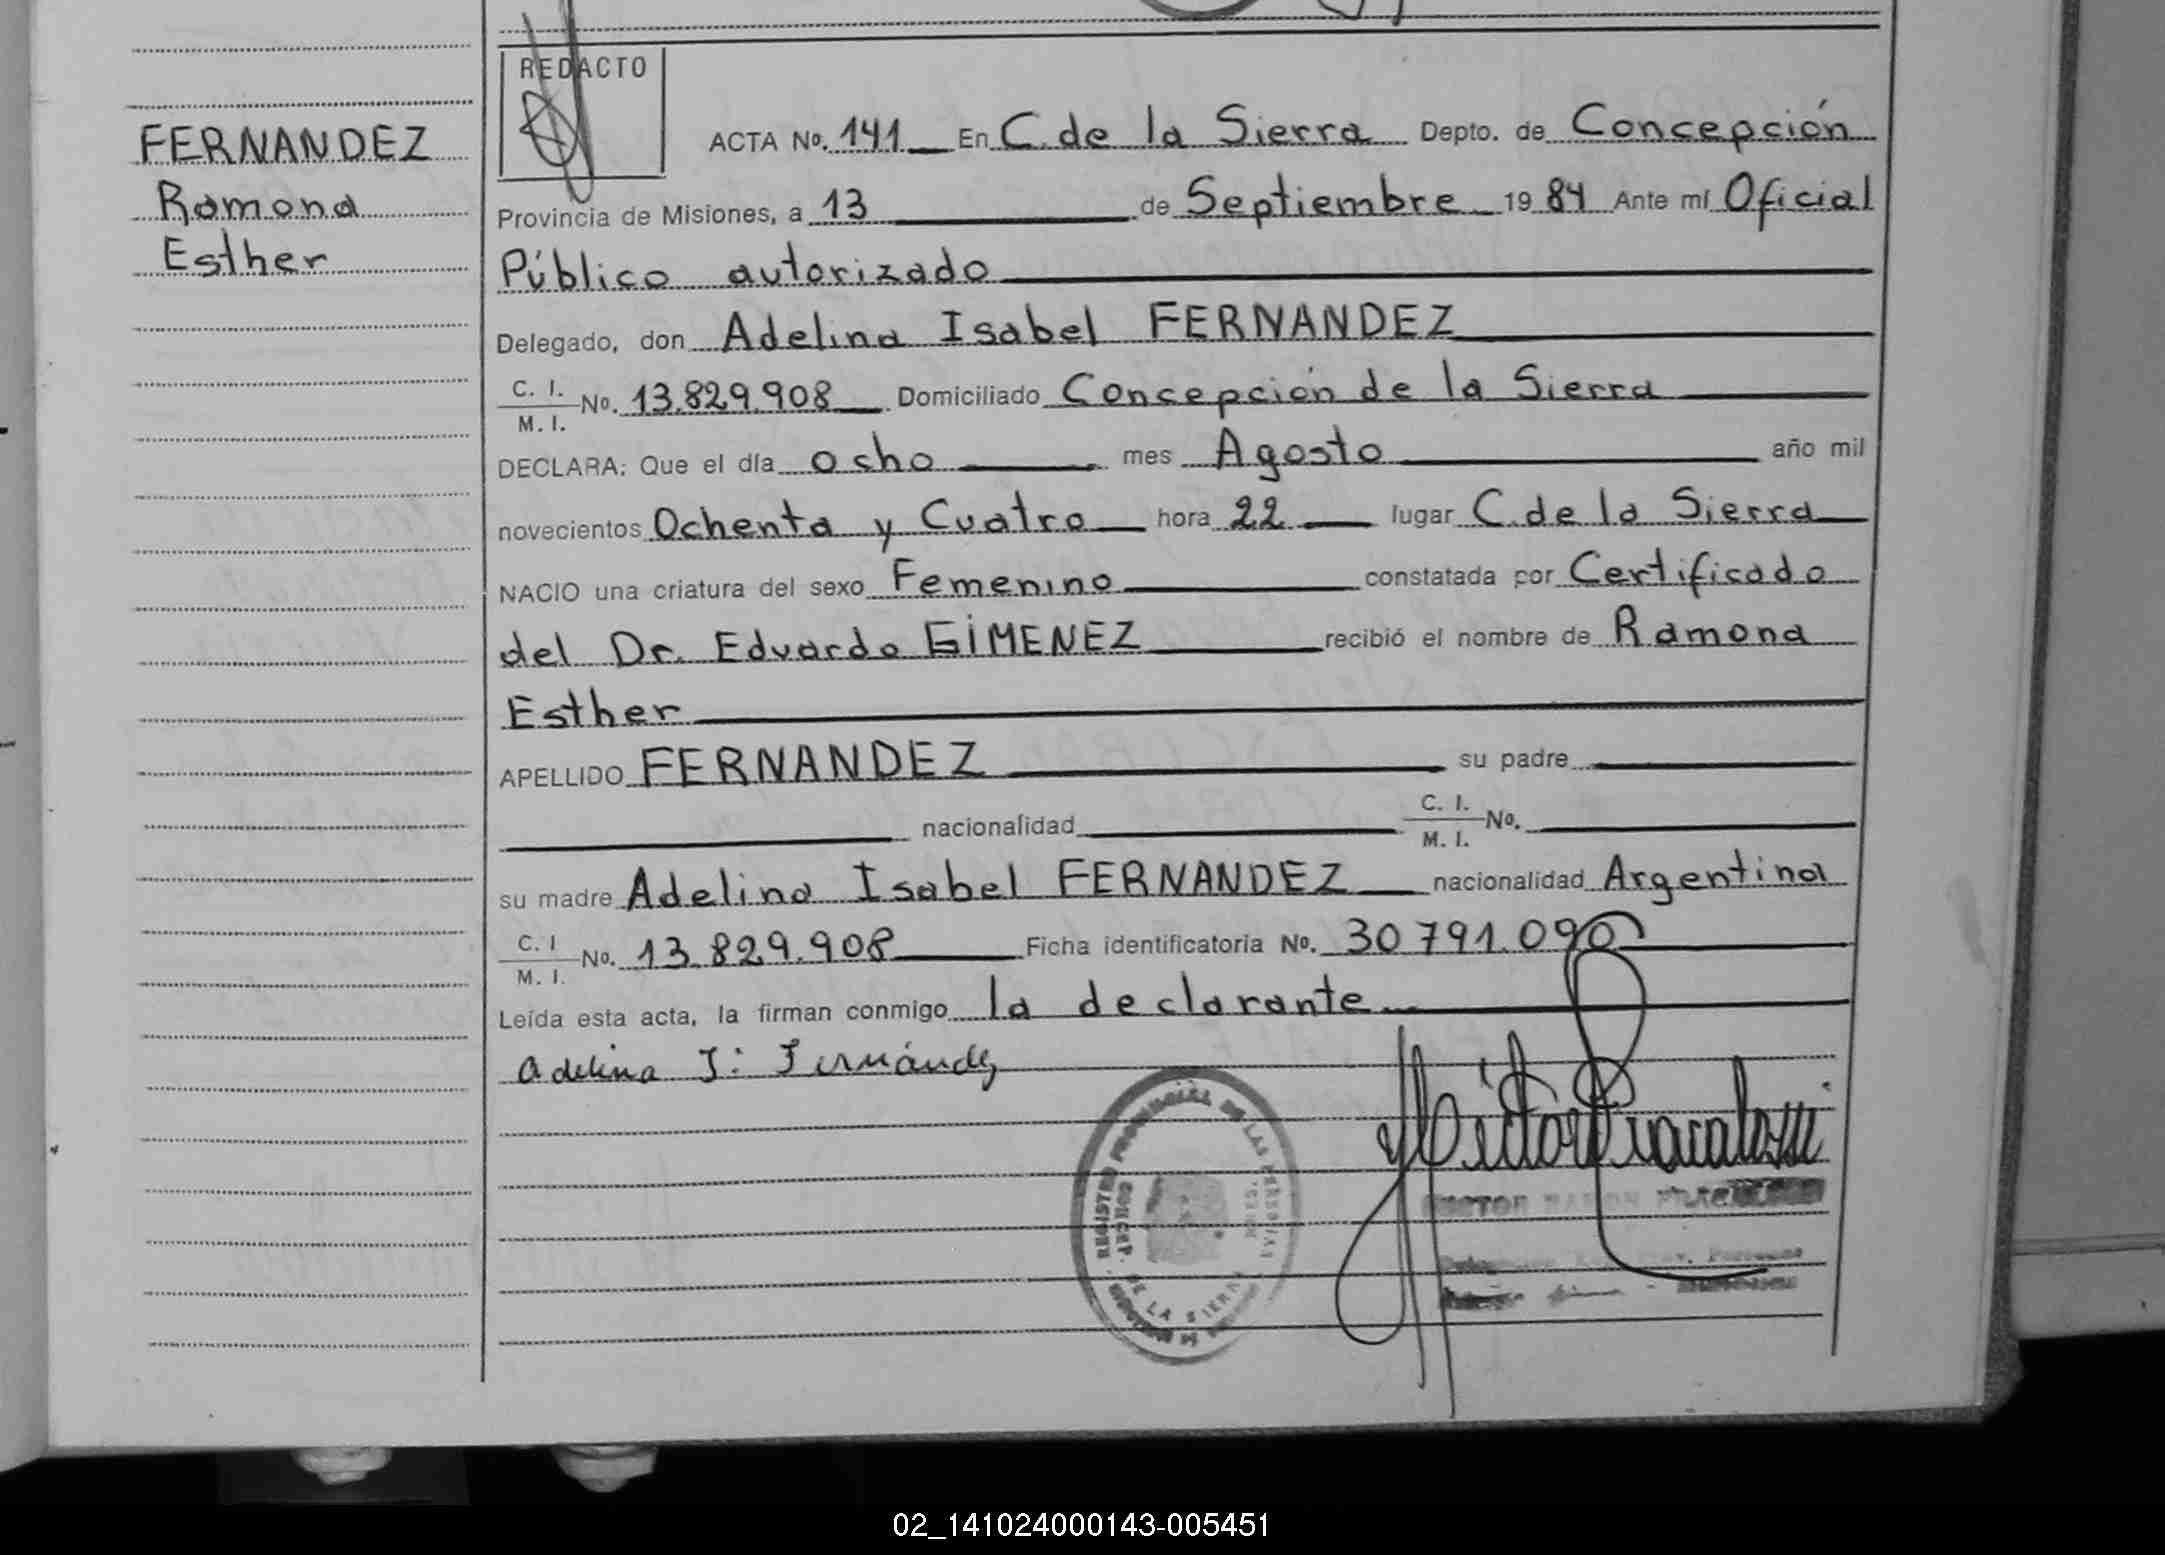 FERNANDEZ
Ramona
Esther
REDACTO
ACTA No. 141 En C. de la Sierra Depto. de Concepción
Provincia de Misiones, a 13 de Septiembre 19 84 Ante mí Oficial
Público autorizado
Delegado, don Adelina Isabel FERNANDEZ
C. I. / M. I. No. 13.829.908 Domiciliado Concepción de la Sierra
DECLARA: Que el día ocho mes Agosto año mil
novecientos Ochenta y Cuatro hora 22 lugar C. de la Sierra
NACIO una criatura del sexo Femenino constatada por Certificado
del Dr. Eduardo GIMENEZ recibió el nombre de Ramona
Esther
APELLIDO FERNANDEZ su padre
nacionalidad C. I. / M. I. No.
su madre Adelina Isabel FERNANDEZ nacionalidad Argentina
C. I / M. I. No. 13.829.908 Ficha identificatoria No. 30 791.090
Leída esta acta, la firman conmigo la declarante
Adelina I. Fernández
REGISTRO PROVINCIAL DE LAS PERSONAS
DE LA SIERRA
02_141024000143-005451